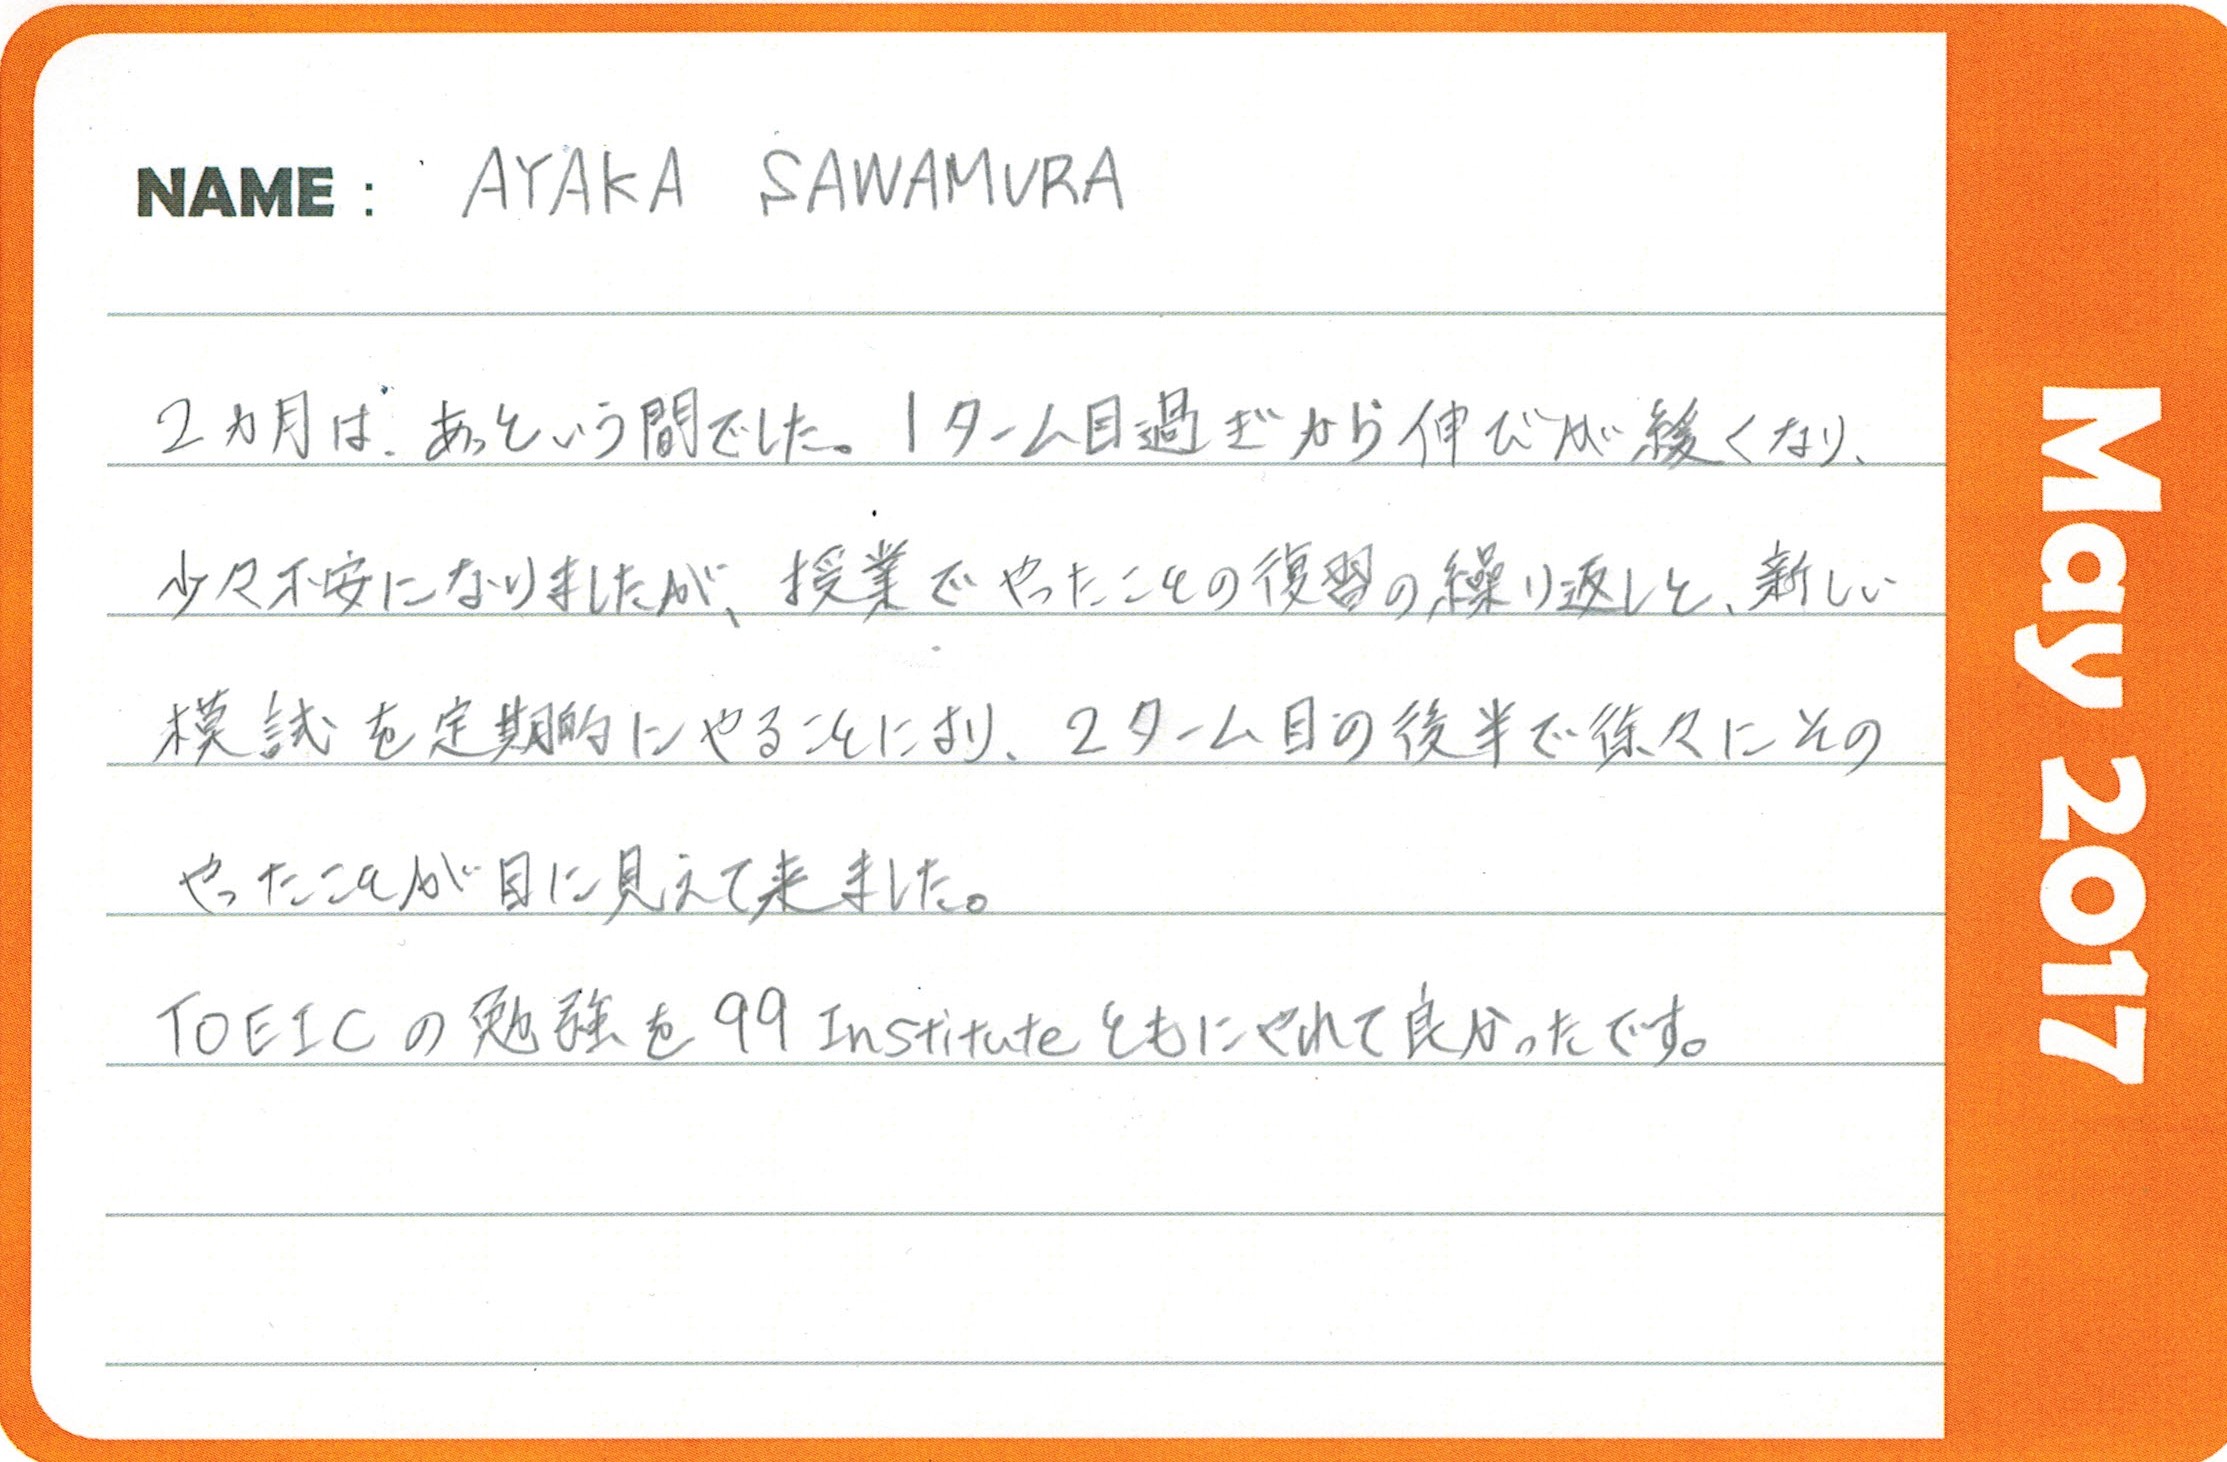 NAME : AYAKA SAWAMURA
2カ月は、あっという間でした。1ターム目過ぎから伸びが緩くなり、
少々不安になりましたが、授業でやったことの復習の繰り返しと、新しい
模試を定期的にやることになり、2ターム目の後半で徐々にその
やったことが目に見えて来ました。
TOEICの勉強を99 Instituteともにやれて良かったです。
May 2017